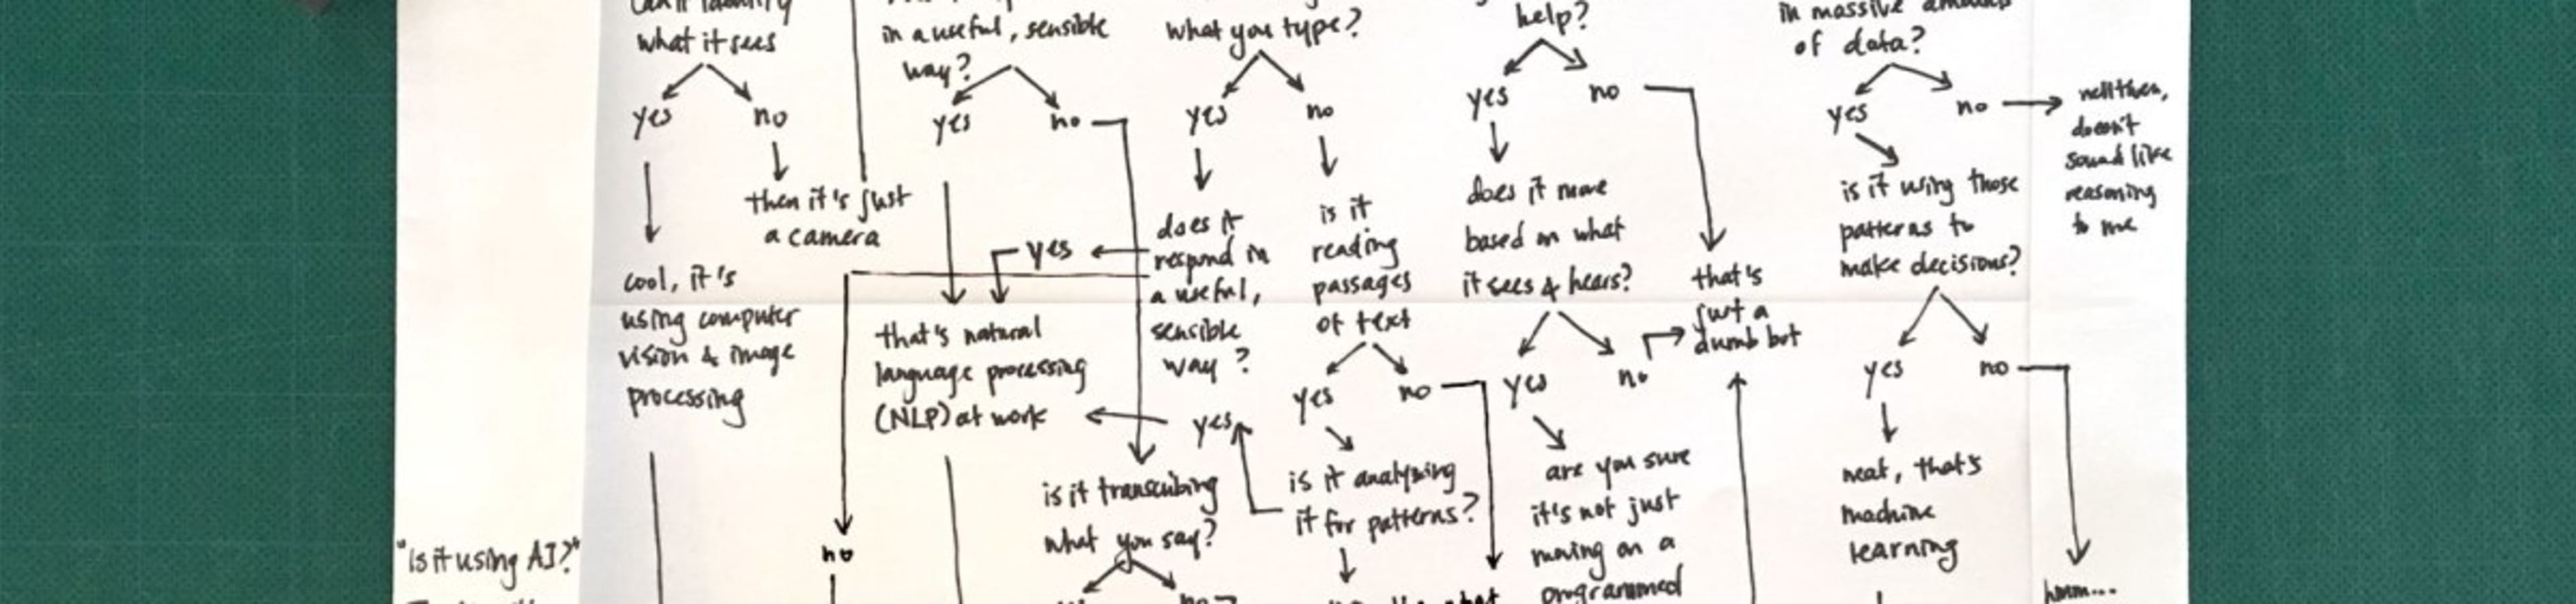 can it identify
what it sees
yes
no
then it's just
a camera
cool, it's
using computer
vision & image
processing
in a useful, sensible
way?
yes
no
that's natural
language processing
(NLP) at work
no
what you type?
yes
no
does it
respond in
a useful,
sensible
way?
yes
is it
reading
passages
of text
yes
no
is it analyzing
it for patterns?
yes
is it transcribing
what you say?
no
help?
yes
no
does it move
based on what
it sees & hears?
that's
just a
dumb bot
yes
no
are you sure
it's not just
moving on a
programmed
in massive amounts
of data?
yes
no
well then,
doesn't
sound like
reasoning
to me
is it using those
patterns to
make decisions?
yes
no
neat, that's
machine
learning
hmm...
"Is it using AI?"